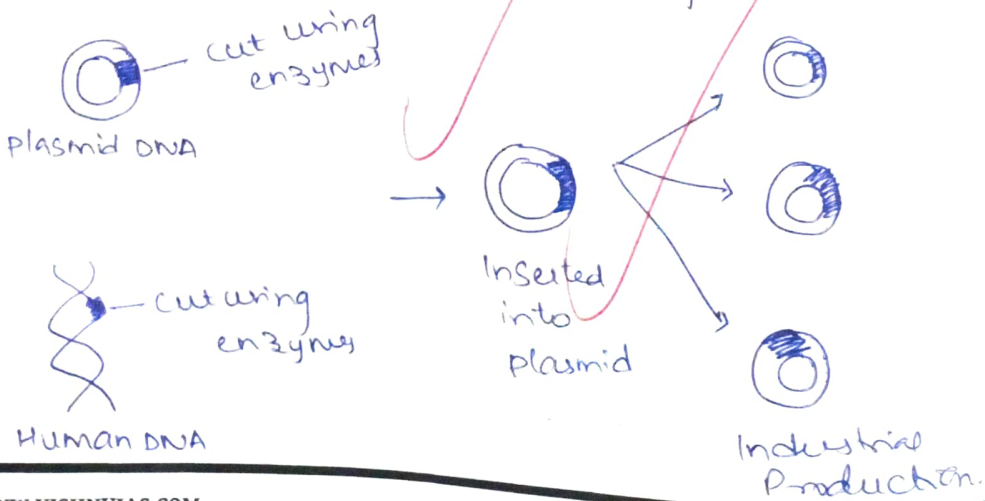 cut using
enzymes
Plasmid DNA
cut using
enzymes
Human DNA
Inserted
into
plasmid
Industrial
Production.